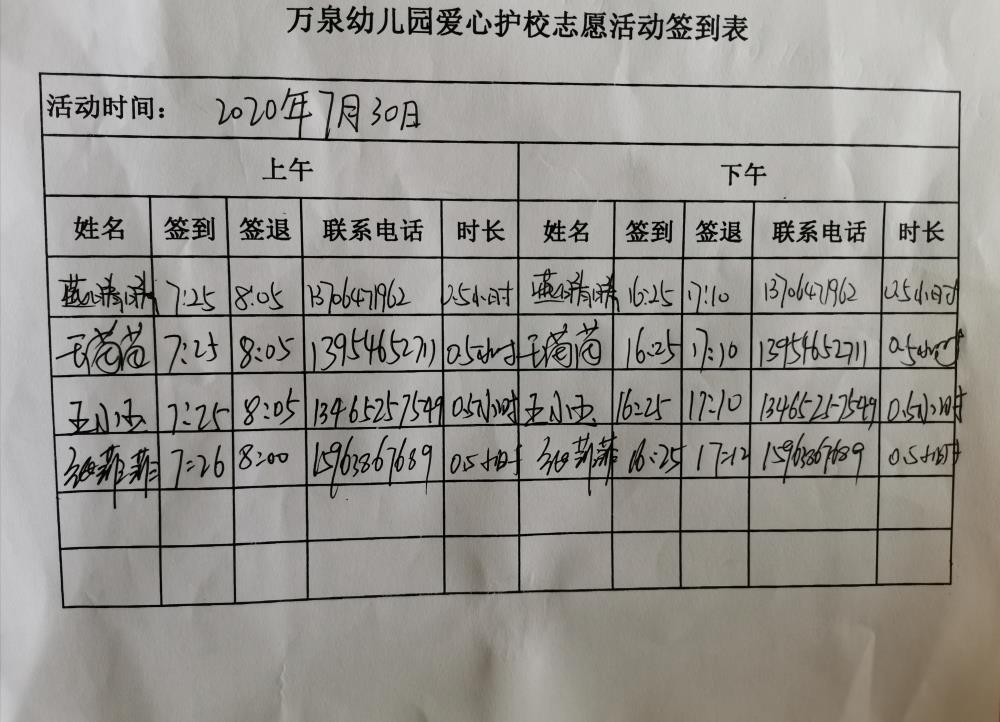 万泉幼儿园爱心护校志愿活动签到表
活动时间： 2020年7月30日
上午 下午
姓名 签到 签退 联系电话 时长 姓名 签到 签退 联系电话 时长
7:25 8:05 13706471962 0.5小时 16:25 17:10 13706471962 0.5小时
7:25 8:05 13954652711 0.5小时 16:25 17:10 13954652711 0.5小时
王小玉 7:25 8:05 13465257549 0.5小时 王小玉 16:25 17:10 13465257549 0.5小时
7:26 8:00 15963867689 0.5小时 16:25 17:12 15963867689 0.5小时